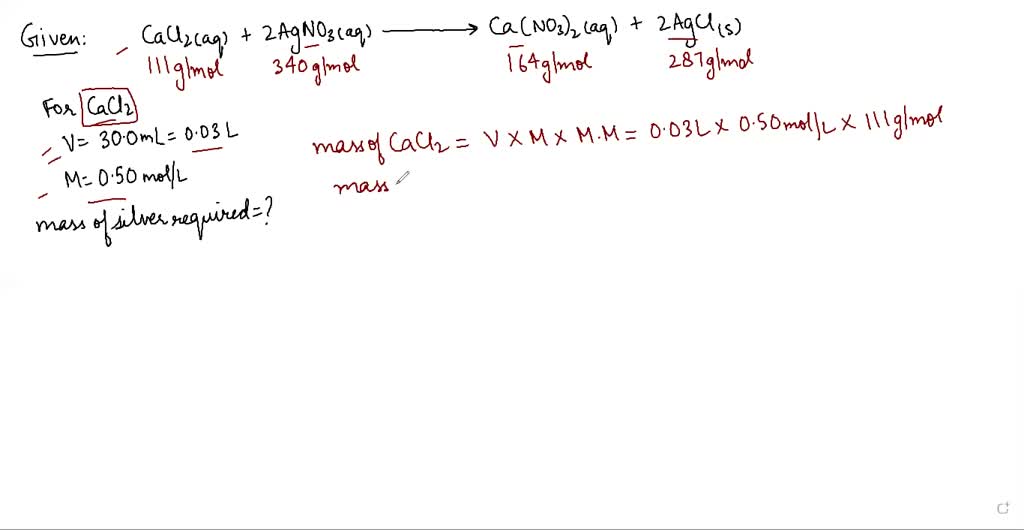 Given: CaCl₂(aq) + 2AgNO₃(aq) ⟶ Ca(NO₃)₂(aq) + 2AgCl(s)
111g/mol 340g/mol 164g/mol 287g/mol
For CaCl₂
V = 30.0mL = 0.03L
M = 0.50 mol/L
mass of silver required = ?
mass of CaCl₂ = V × M × M.M = 0.03L × 0.50mol/L × 111g/mol
mass